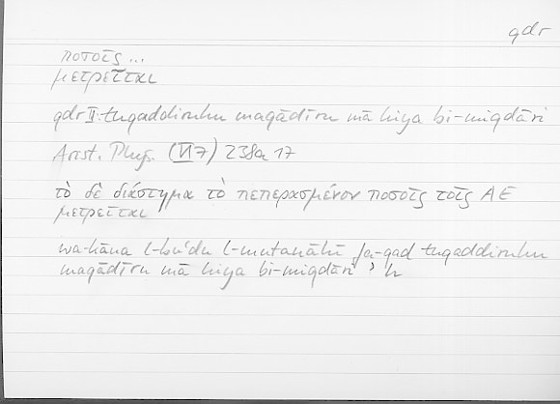 qdr
ποσοῖς...
μετρεῖται
qdr II: tuqaddiruhu maqādīru mā hiya bi-miqdāri
Arist. Phys. (VI 7) 238a 17
τὸ δὲ διάστημα τὸ πεπερασμένον ποσοῖς τοῖς ΑΕ
μετρεῖται
wa-kāna l-buʿdu l-mutanāhī fa-qad tuqaddiruhu
maqādīru mā hiya bi-miqdāri ʾ h